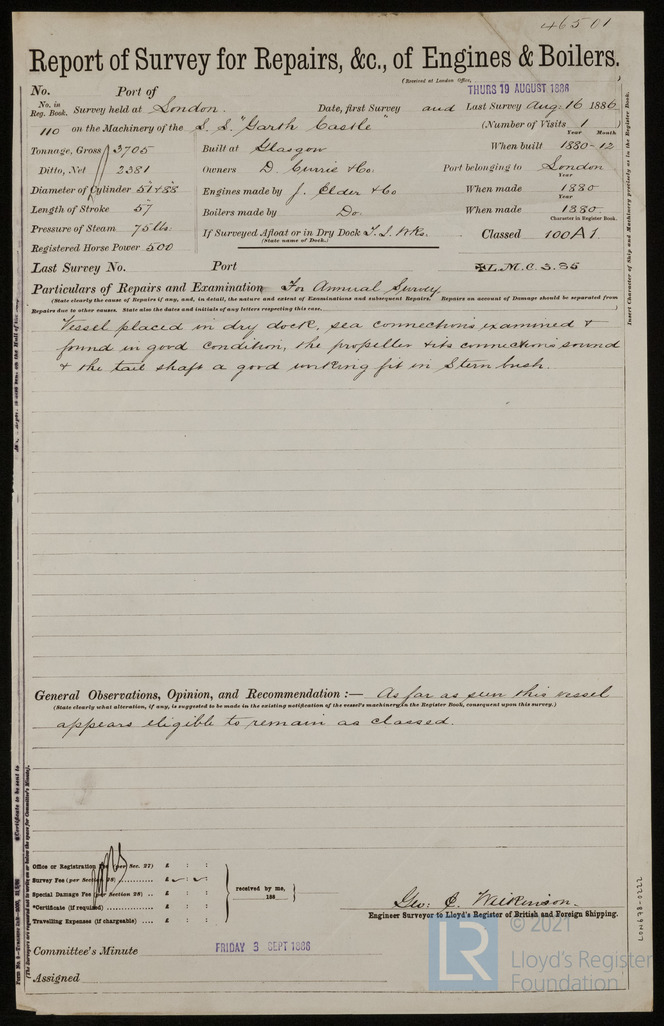 46501
Report of Survey for Repairs, &c., of Engines & Boilers.
(Received at London Office,
THURS 19 AUGUST 1886
No. Port of
No. in Reg. Book. Survey held at London. Date, first Survey and Last Survey Aug: 16 1886
110 on the Machinery of the S. S. "Garth Castle" (Number of Visits 1)
Year Month
Tonnage, Gross 3705 Built at Glasgow When built 1880-12
Ditto, Net 2381 Owners D. Currie & Co. Port belonging to London
Year
Diameter of Cylinder 51" & 88" Engines made by J. Elder & Co When made 1880
Year
Length of Stroke 57" Boilers made by Do. When made 1880
Character in Register Book.
Pressure of Steam 75 lbs If Surveyed Afloat or in Dry Dock Classed 100A1
(State name of Dock.)
Registered Horse Power 500
Last Survey No. Port ✠L.M.C. 3.85
Particulars of Repairs and Examination For Annual Survey
(State clearly the cause of Repairs if any, and, in detail, the nature and extent of Examinations and subsequent Repairs. Repairs on account of Damage should be separated from
Repairs due to other causes. State also the dates and initials of any letters respecting this case.
Vessel placed in dry dock, sea connections examined &
found in good condition, the propeller & its connections sound
& the tail shaft a good working fit in Stern bush.
General Observations, Opinion, and Recommendation :— As far as seen this vessel
(State clearly what alteration, if any, is suggested to be made in the existing notification of the vessel's machinery in the Register Book, consequent upon this survey.)
appears eligible to remain as classed.
Office or Registration Fee (per Sec. 27) £ : :
Survey Fee (per Section 28) £ : :
Special Damage Fee (per Section 28) £ : :
*Certificate (if required) £ : :
Travelling Expenses (if chargeable) £ : :
received by me,
188
Geo: C. Wilkinson.
Engineer Surveyor to Lloyd's Register of British and Foreign Shipping.
Committee's Minute FRIDAY 3 SEPT 1886
Assigned
Insert Character of Ship and Machinery precisely as in the Register Book.
LON678-0222
LR
© 2021
Lloyd's Register
Foundation